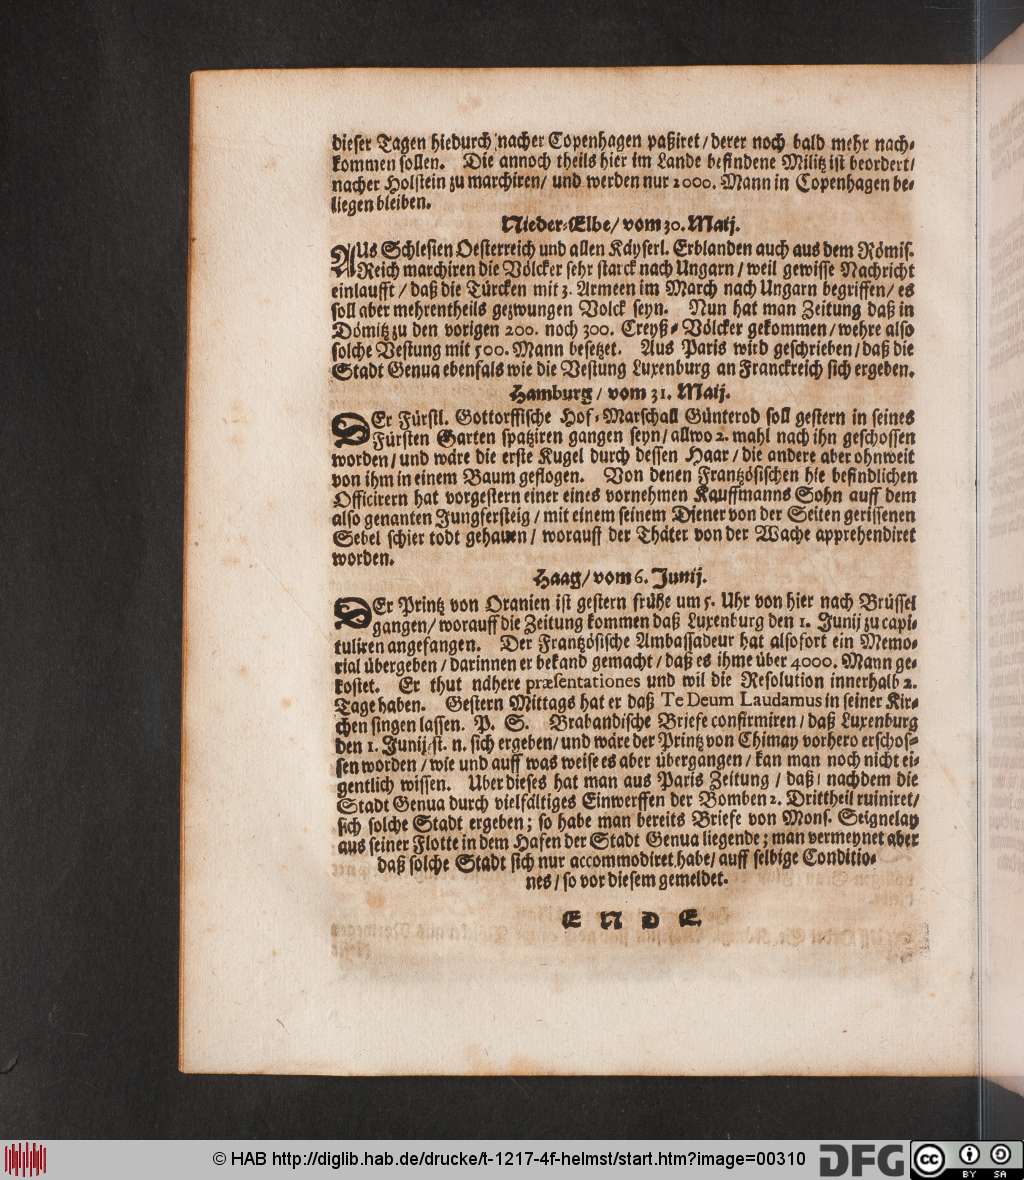 dieser Tagen hiedurch nacher Copenhagen paßiret/ derer noch bald mehr nach-
kommen sollen. Die annoch theils hier im Lande befindene Militz ist beordert/
nacher Holstein zu marchiren/ und werden nur 2000. Mann in Copenhagen be-
liegen bleiben.
Nieder-Elbe/ vom 30. Maij.
AUs Schlesien Oesterreich und allen Käyserl. Erblanden auch aus dem Römis.
Reich marchiren die Völcker sehr starck nach Ungarn/ weil gewisse Nachricht
einlaufft/ daß die Türcken mit 3. Armeen im March nach Ungarn begriffen/ es
soll aber mehrentheils gezwungen Volck seyn. Nun hat man Zeitung daß in
Dömitz zu den vorigen 200. noch 300. Creyß-Völcker gekommen/ wehre also
solche Vestung mit 500. Mann besetzet. Aus Paris wird geschrieben/ daß die
Stadt Genua ebenfals wie die Vestung Luxenburg an Franckreich sich ergeben.
Hamburg/ vom 31. Maij.
DEr Fürstl. Gottorffische Hof-Marschall Günterod soll gestern in seines
Fürsten Garten spatziren gangen seyn/ allwo 2. mahl nach ihn geschossen
worden/ und wäre die erste Kugel durch dessen Haar/ die andere aber ohnweit
von ihm in einem Baum geflogen. Von denen Frantzösischen hie befindlichen
Officirern hat vorgestern einer eines vornehmen Kauffmanns Sohn auff dem
also genanten Jungfersteig/ mit einem seinem Diener von der Seiten gerissenen
Sebel schier todt gehauen/ worauff der Thäter von der Wache apprehendiret
worden.
Haag/ vom 6. Junij.
DEr Printz von Oranien ist gestern frühe um 5. Uhr von hier nach Brüssel
gangen/ worauff die Zeitung kommen daß Luxenburg den 1. Junij zu capi-
tuliren angefangen. Der Frantzösische Ambassadeur hat alsofort ein Memo-
rial übergeben/ darinnen er bekand gemacht/ daß es ihme über 4000. Mann ge-
kostet. Er thut nähere præsentationes und wil die Resolution innerhalb 2.
Tage haben. Gestern Mittags hat er daß Te Deum Laudamus in seiner Kir-
chen singen lassen. P. S. Brabandische Briefe confirmiren/ daß Luxenburg
den 1. Junij. st. n. sich ergeben/ und wäre der Printz von Chimay vorhero erschos-
sen worden/ wie und auff was weise es aber übergangen/ kan man noch nicht ei-
gentlich wissen. Uber dieses hat man aus Paris Zeitung/ daß/ nachdem die
Stadt Genua durch vielfältiges Einwerffen der Bomben 2. Drittheil ruiniret/
sich solche Stadt ergeben; so habe man bereits Briefe von Mons. Seignelay
aus seiner Flotte in dem Hafen der Stadt Genua liegende; man vermeynet aber
daß solche Stadt sich nur accommodiret habe/ auff selbige Conditio-
nes/ so vor diesem gemeldet.
ENDE.
© HAB http://diglib.hab.de/drucke/t-1217-4f-helmst/start.htm?image=00310
DFG
cc BY SA